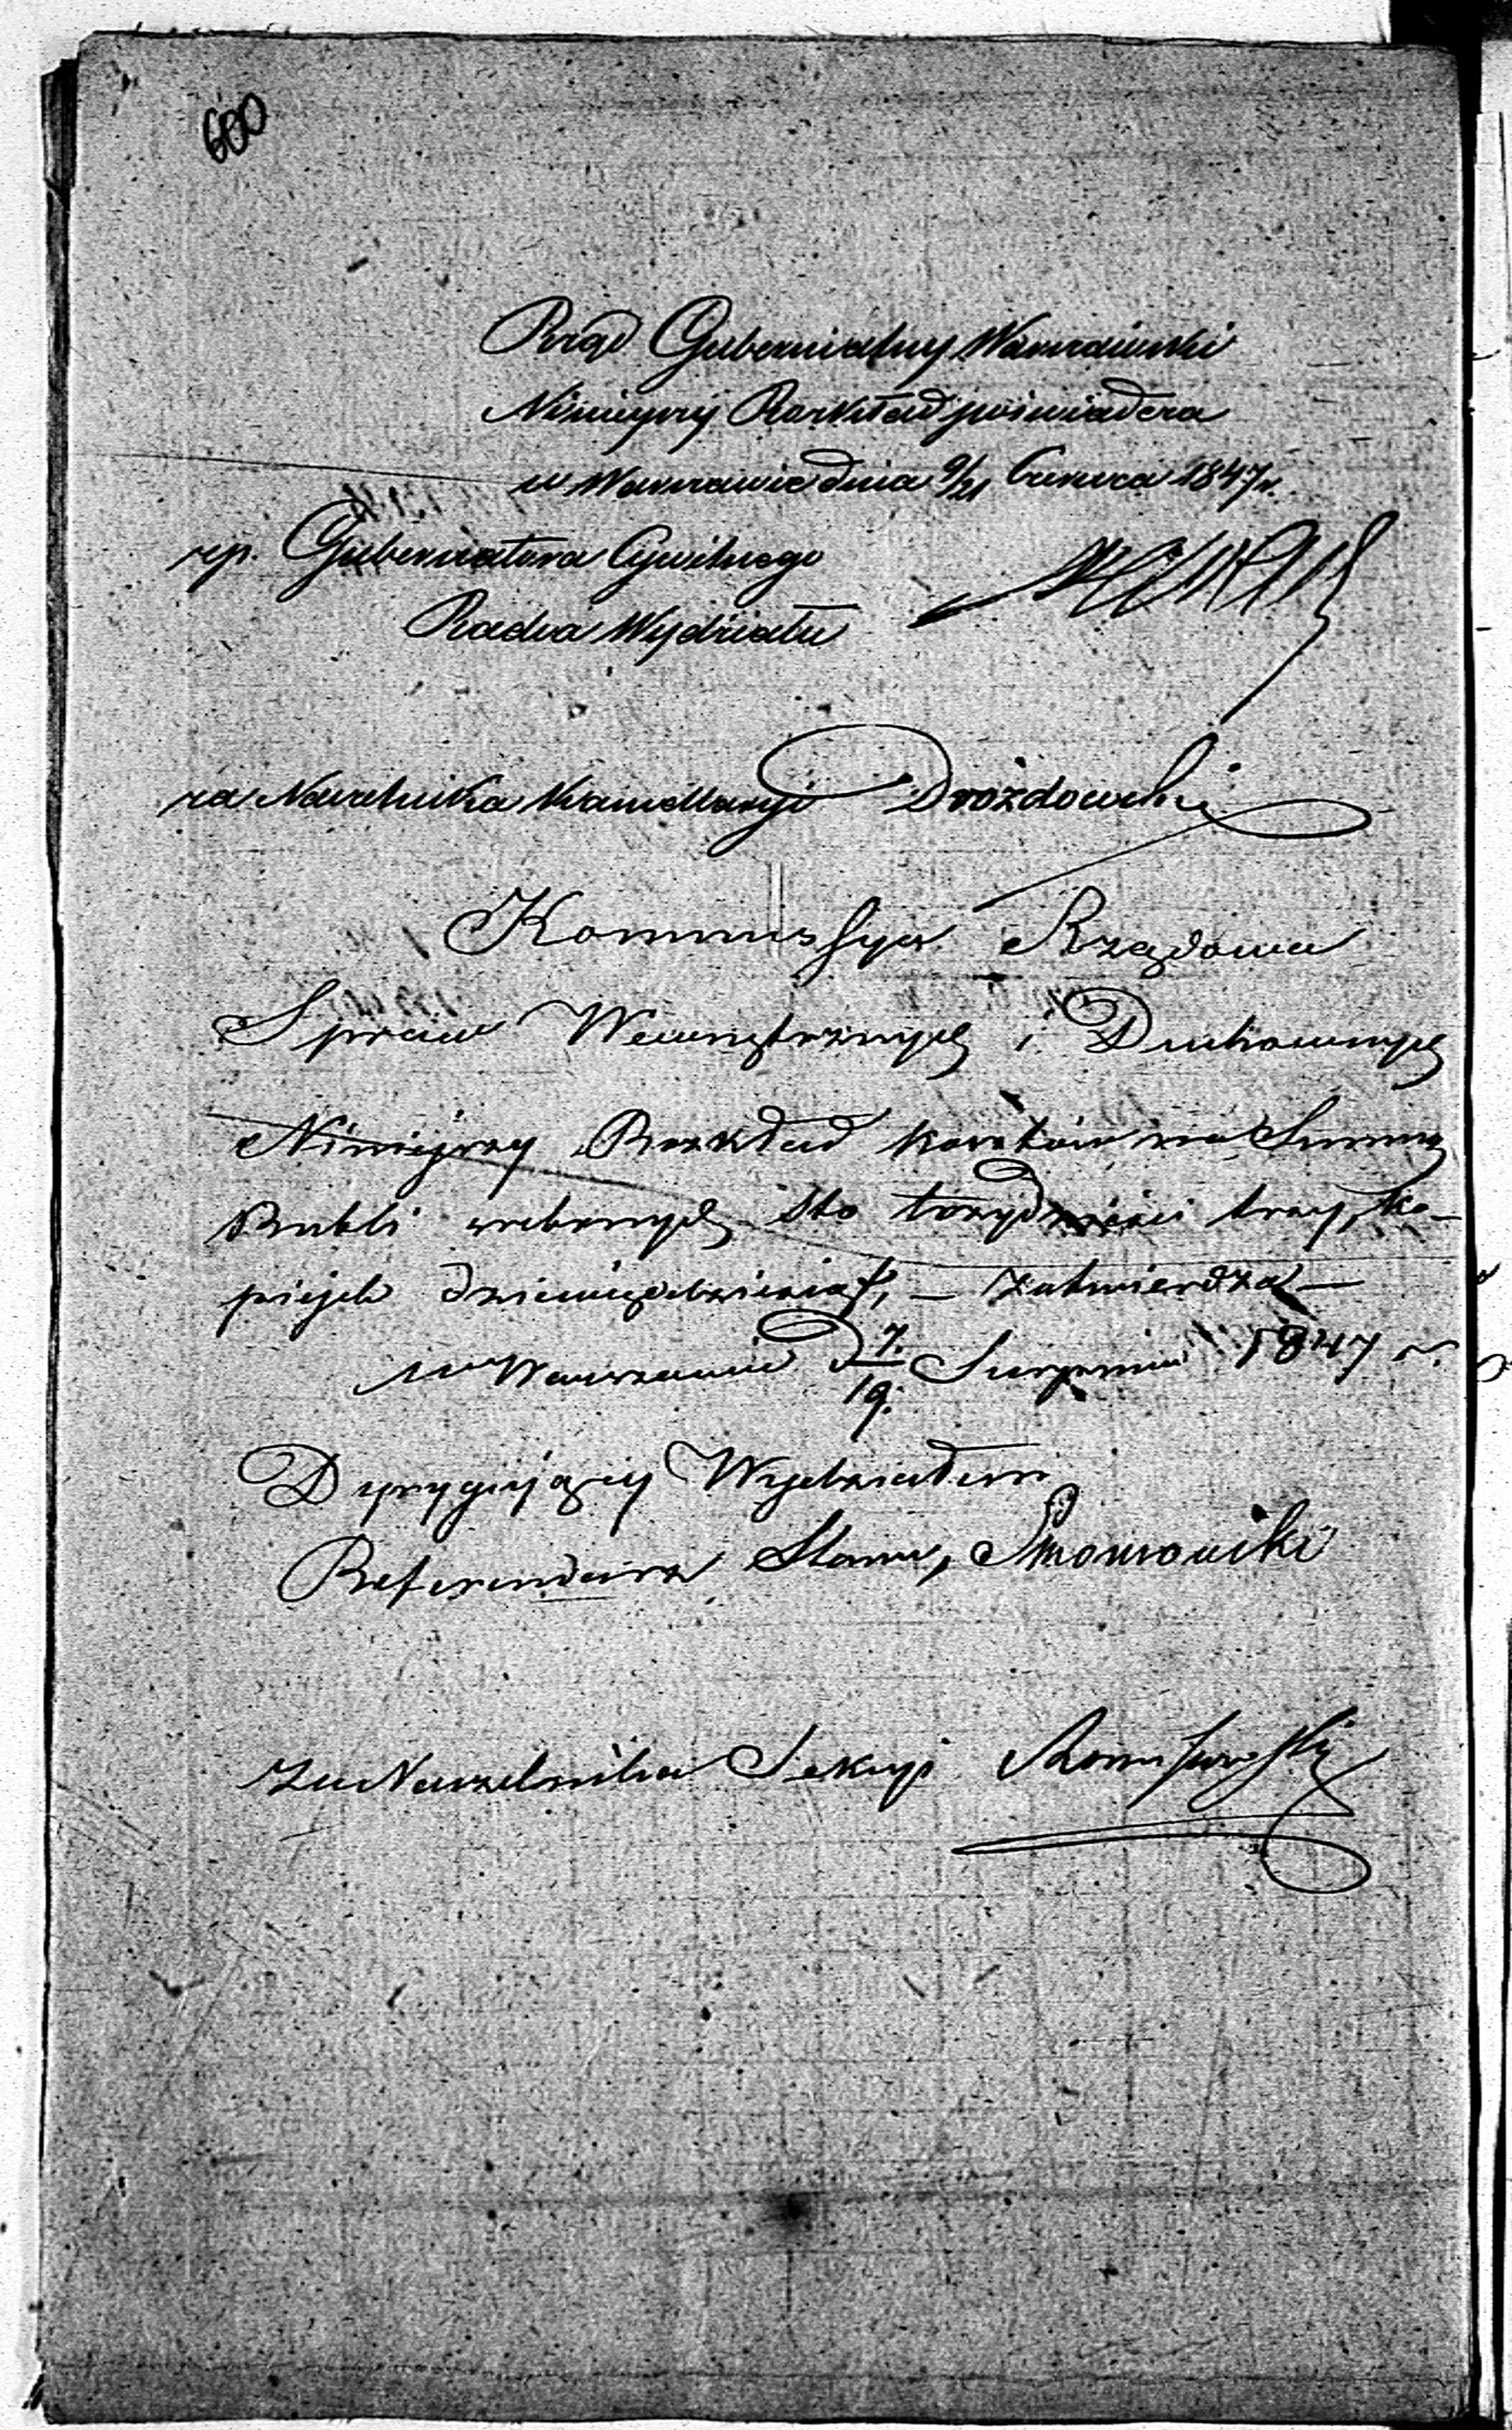 600
Rząd Gubernialny Warszawski
Niniejszy Rozkład poświadcza
w Warszawie dnia 9/21 Czerwca 1847 r.
zp. Gubernatora Cywilnego
Radca Wydziału
za Naczelnika Kancellaryi Drożdowski
Kommissya Rządowa
Spraw Wewnętrznych i Duchownych
Niniejszy Rozkład kosztów na Summę
Rubli srebrnych sto trzydzieści trzy, ko-
piejek dziewięćdziesiąt, — zatwierdza —
w Warszawie d 7/19. Sierpnia 1847 r.
Dyrygujący Wydziałem
Referendarz Stanu,
za Naczelnika Sekcyi